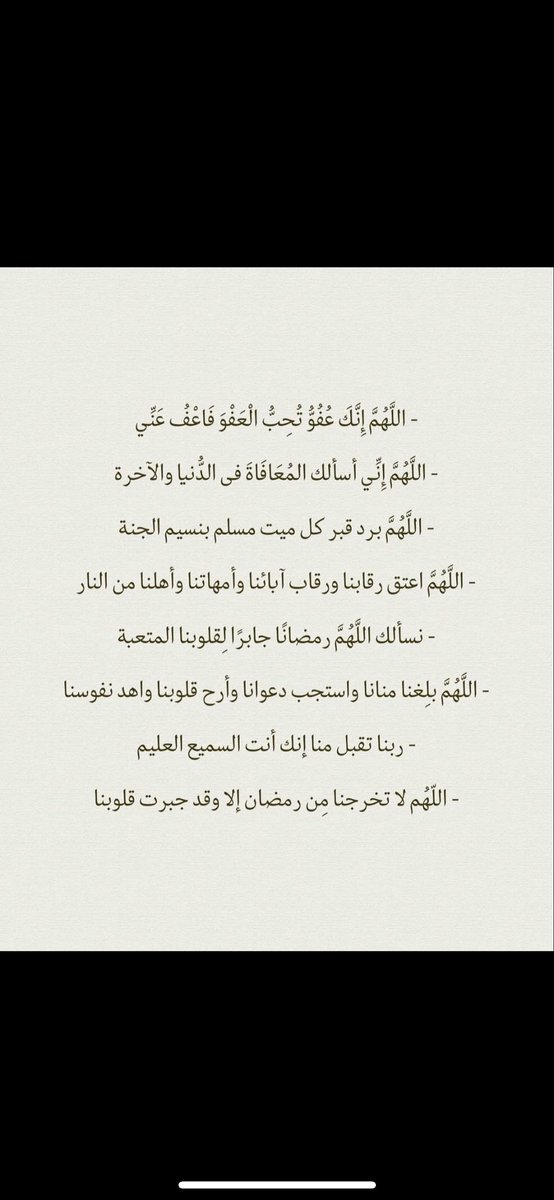 - اللَّهُمَّ إِنَّكَ عُفُوٌّ تُحِبُّ الْعَفْوَ فَاعْفُ عَنِّي
- اللَّهُمَّ إِنِّي أسألك المُعَافَاةَ فى الدُّنيا والآخرة
- اللَّهُمَّ برد قبر كل ميت مسلم بنسيم الجنة
- اللَّهُمَّ اعتق رقابنا ورقاب آبائنا وأمهاتنا وأهلنا من النار
- نسألك اللَّهُمَّ رمضانًا جابرًا لِقلوبنا المتعبة
- اللَّهُمَّ بلِغنا منانا واستجب دعوانا وأرح قلوبنا واهد نفوسنا
- ربنا تقبل منا إنك أنت السميع العليم
- اللّهُم لا تخرجنا مِن رمضان إلا وقد جبرت قلوبنا